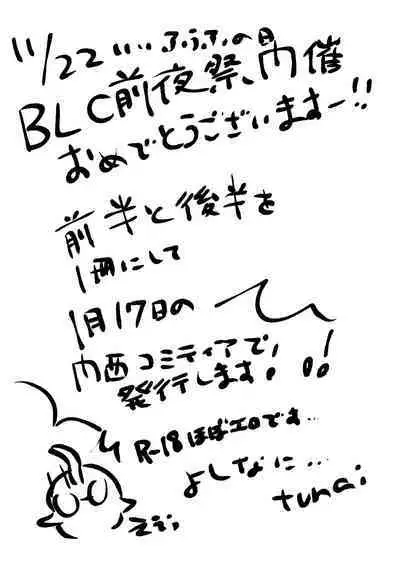 11/22 いい ふうふの日
BLC前夜祭内催
おめでとうございますー!!
前半と後半を
1冊にして
1月17日の
内西コミティアで、
発行します。!!
R-18ほぼエロです…
よしなに…
tunai